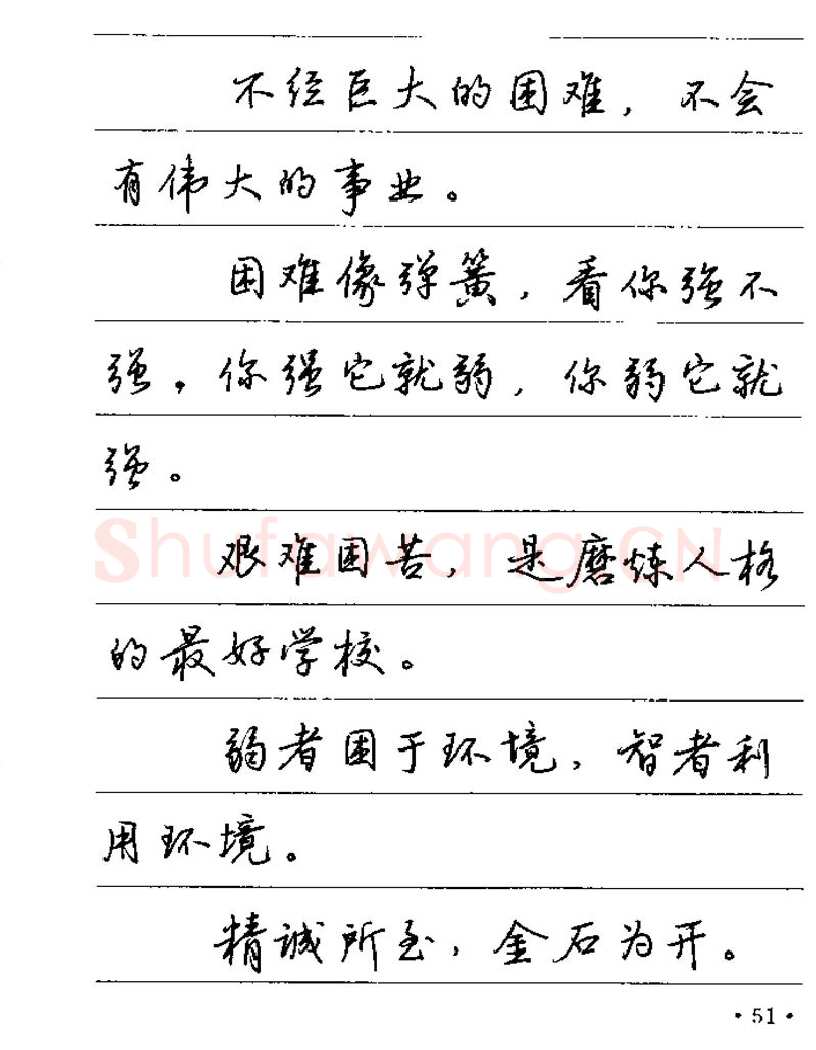 不经巨大的困难，不会
有伟大的事业。
困难像弹簧，看你强不
强，你强它就弱，你弱它就
强。
艰难困苦，是磨炼人格
的最好学校。
弱者困于环境，智者利
用环境。
精诚所至，金石为开。
Shufawang.CN
·51·